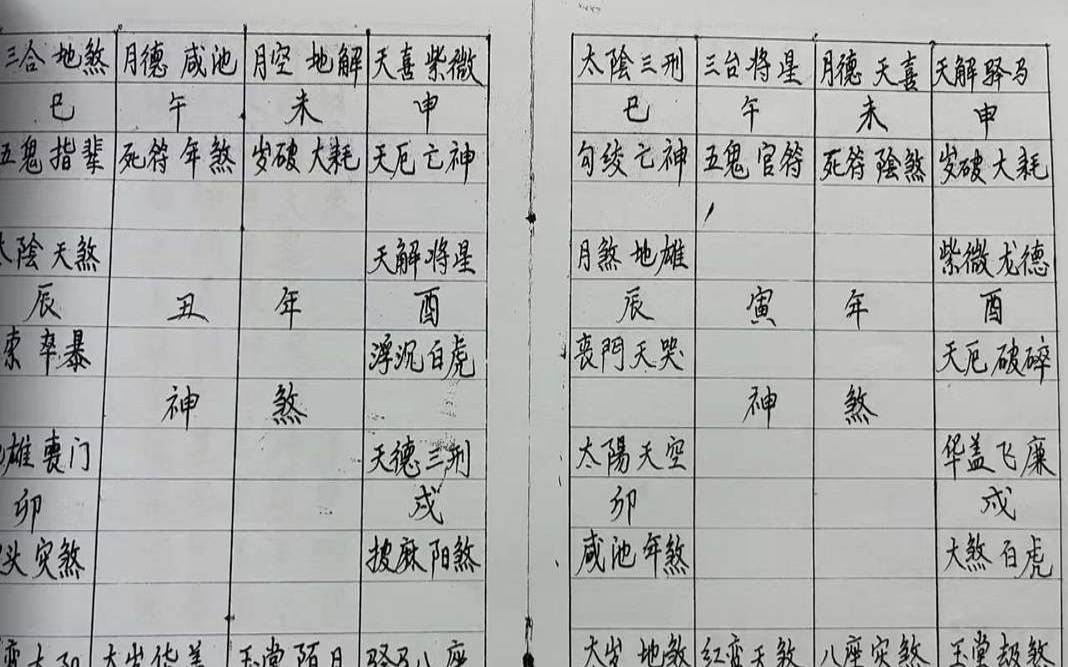 三合 地煞 月德 咸池 月空 地解 天喜 紫微
巳 午 未 申
五鬼 指辈 死符 年煞 岁破 大耗 天厄 亡神
太陰 天煞 天解 将星
辰 丑 年 酉
索 卒暴 浮沉 白虎
神 煞
地雄 喪门 天德 三刑
卯 戌
头 灾煞 披麻 阳煞
太岁 华盖 玉堂 陌月 驿马 八座
太陰 三刑 三台 将星 月德 天喜 天解 驿马
巳 午 未 申
勾绞 亡神 五鬼 官符 死符 陰煞 岁破 大耗
月煞 地雄 紫微 龙德
辰 寅 年 酉
喪門 天哭 天厄 破碎
神 煞
太陽 天空 华盖 飞廉
卯 戌
咸池 年煞 大煞 白虎
大岁 地煞 红鸾 天煞 八座 灾煞 玉堂 劫煞